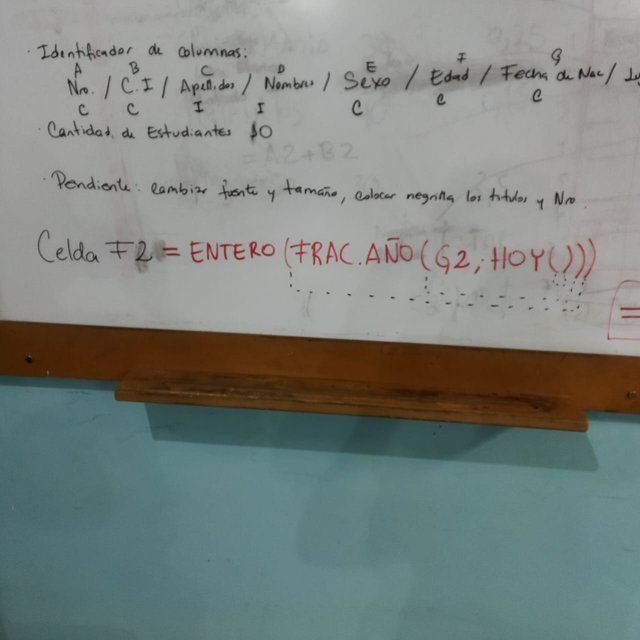 · Identificador de columnas:
A B C D E F G
No. / C.I / Apellidos / Nombres / Sexo / Edad / Fecha de Nac /
C C I I C C C
· Cantidad de Estudiantes 10
= A2+B2
· Pendiente: cambiar fuente y tamaño, colocar negrilla los titulos y Nro.
Celda F2 = ENTERO (FRAC.AÑO (G2; HOY()))
=